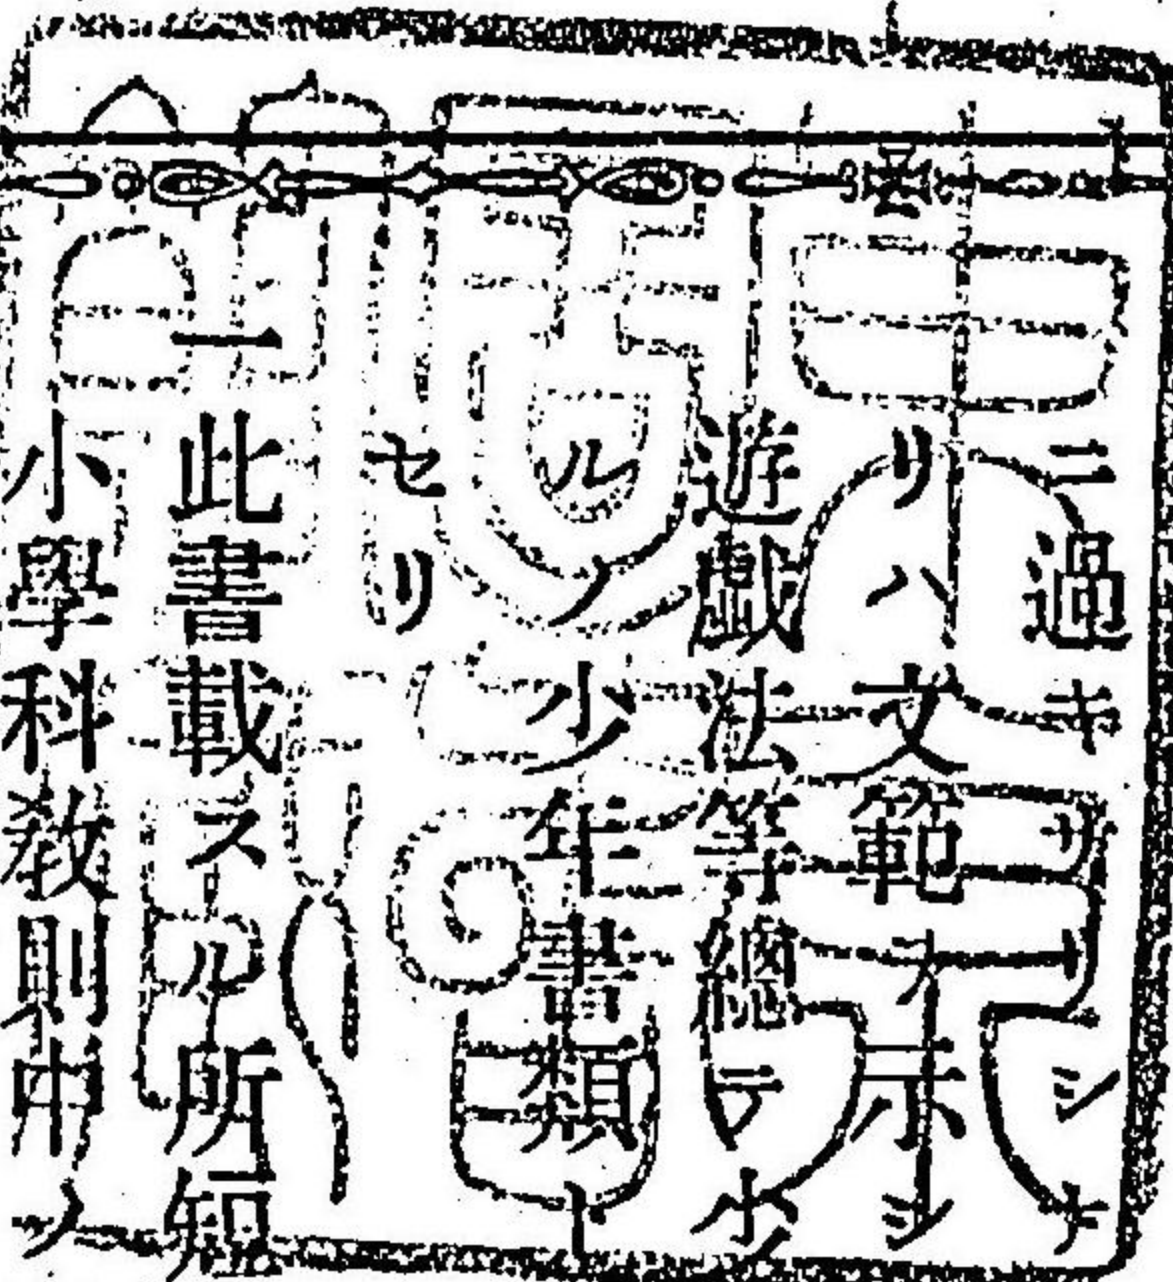 ニ過キサリシナ
リハ文範ヲ示シ
遊戯法等總テ少
ルノ少年書類ト
セリ
一此書載スル所短
小學科教則中ノ